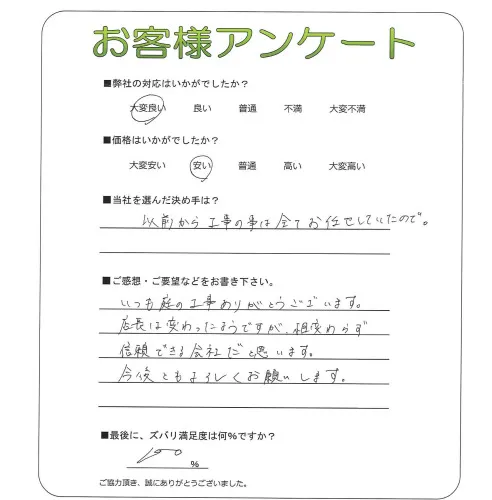 お客様アンケート
■弊社の対応はいかがでしたか？
大変良い 良い 普通 不満 大変不満
■価格はいかがでしたか？
大変安い 安い 普通 高い 大変高い
■当社を選んだ決め手は？
以前から工事の事は全てお任せしていたので。
■ご感想・ご要望などをお書き下さい。
いつも庭の工事ありがとうございます。
店長は変わったようですが、相変わらず
信頼できる会社だと思います。
今後ともよろしくお願いします。
■最後に、ズバリ満足度は何％ですか？
100 %
ご協力頂き、誠にありがとうございました。